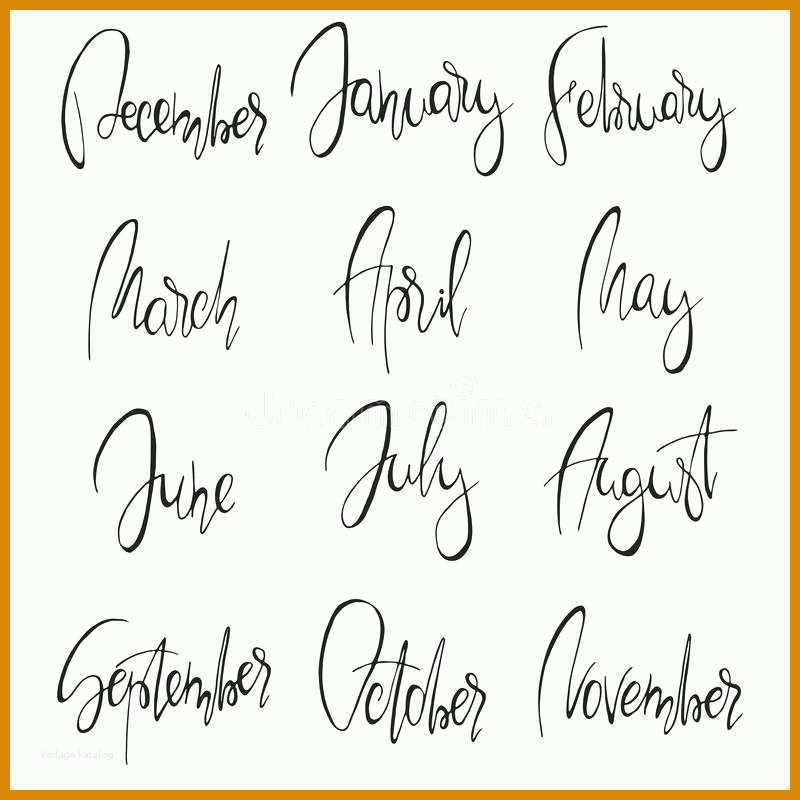 December January February
March April May
June July August
September October November
dreamstime.
vorlage katalog